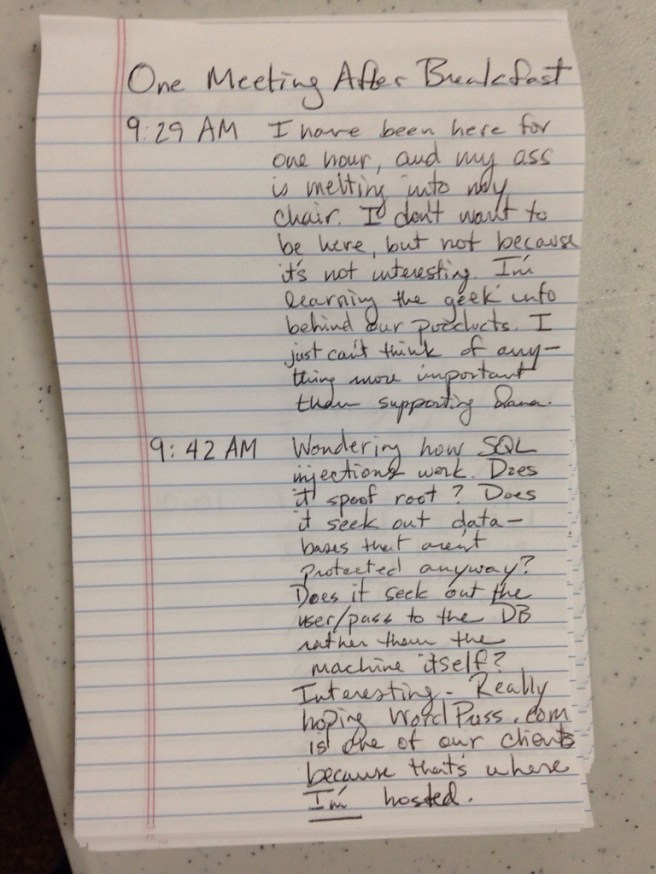 One Meeting After Breakfast
9:29 AM I have been here for
one hour, and my ass
is melting into my
chair. I don't want to
be here, but not because
it's not interesting. I'm
learning the geek info
behind our products. I
just can't think of any-
thing more important
than supporting Dana.
9:42 AM Wondering how SQL
injections work. Does
it spoof root? Does
it seek out data-
bases that aren't
protected anyway?
Does it seek out the
user/pass to the DB
rather than the
machine itself?
Interesting. Really
hoping WordPress.com
is one of our clients
because that's where
I'm hosted.